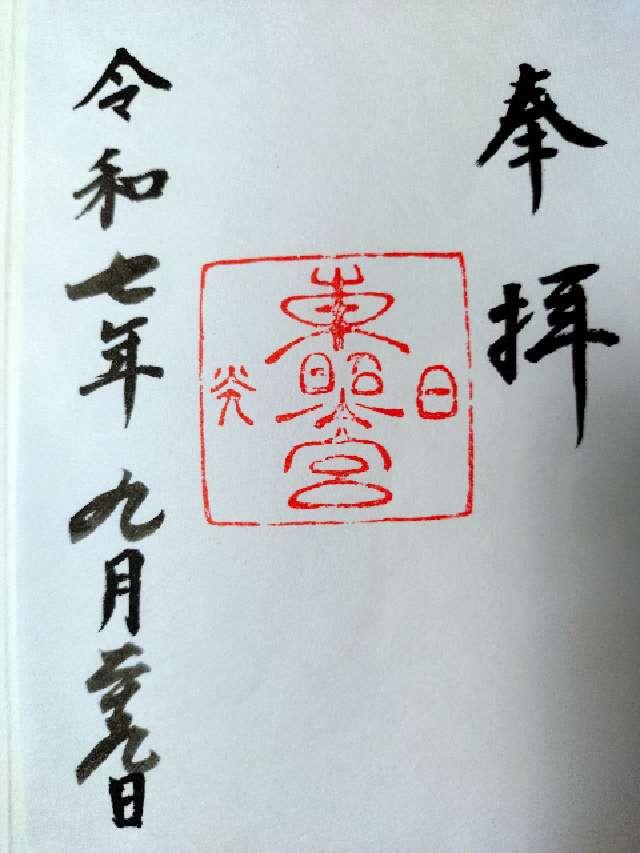 奉拝
日
東照宮
光
令和七年九月二十九日